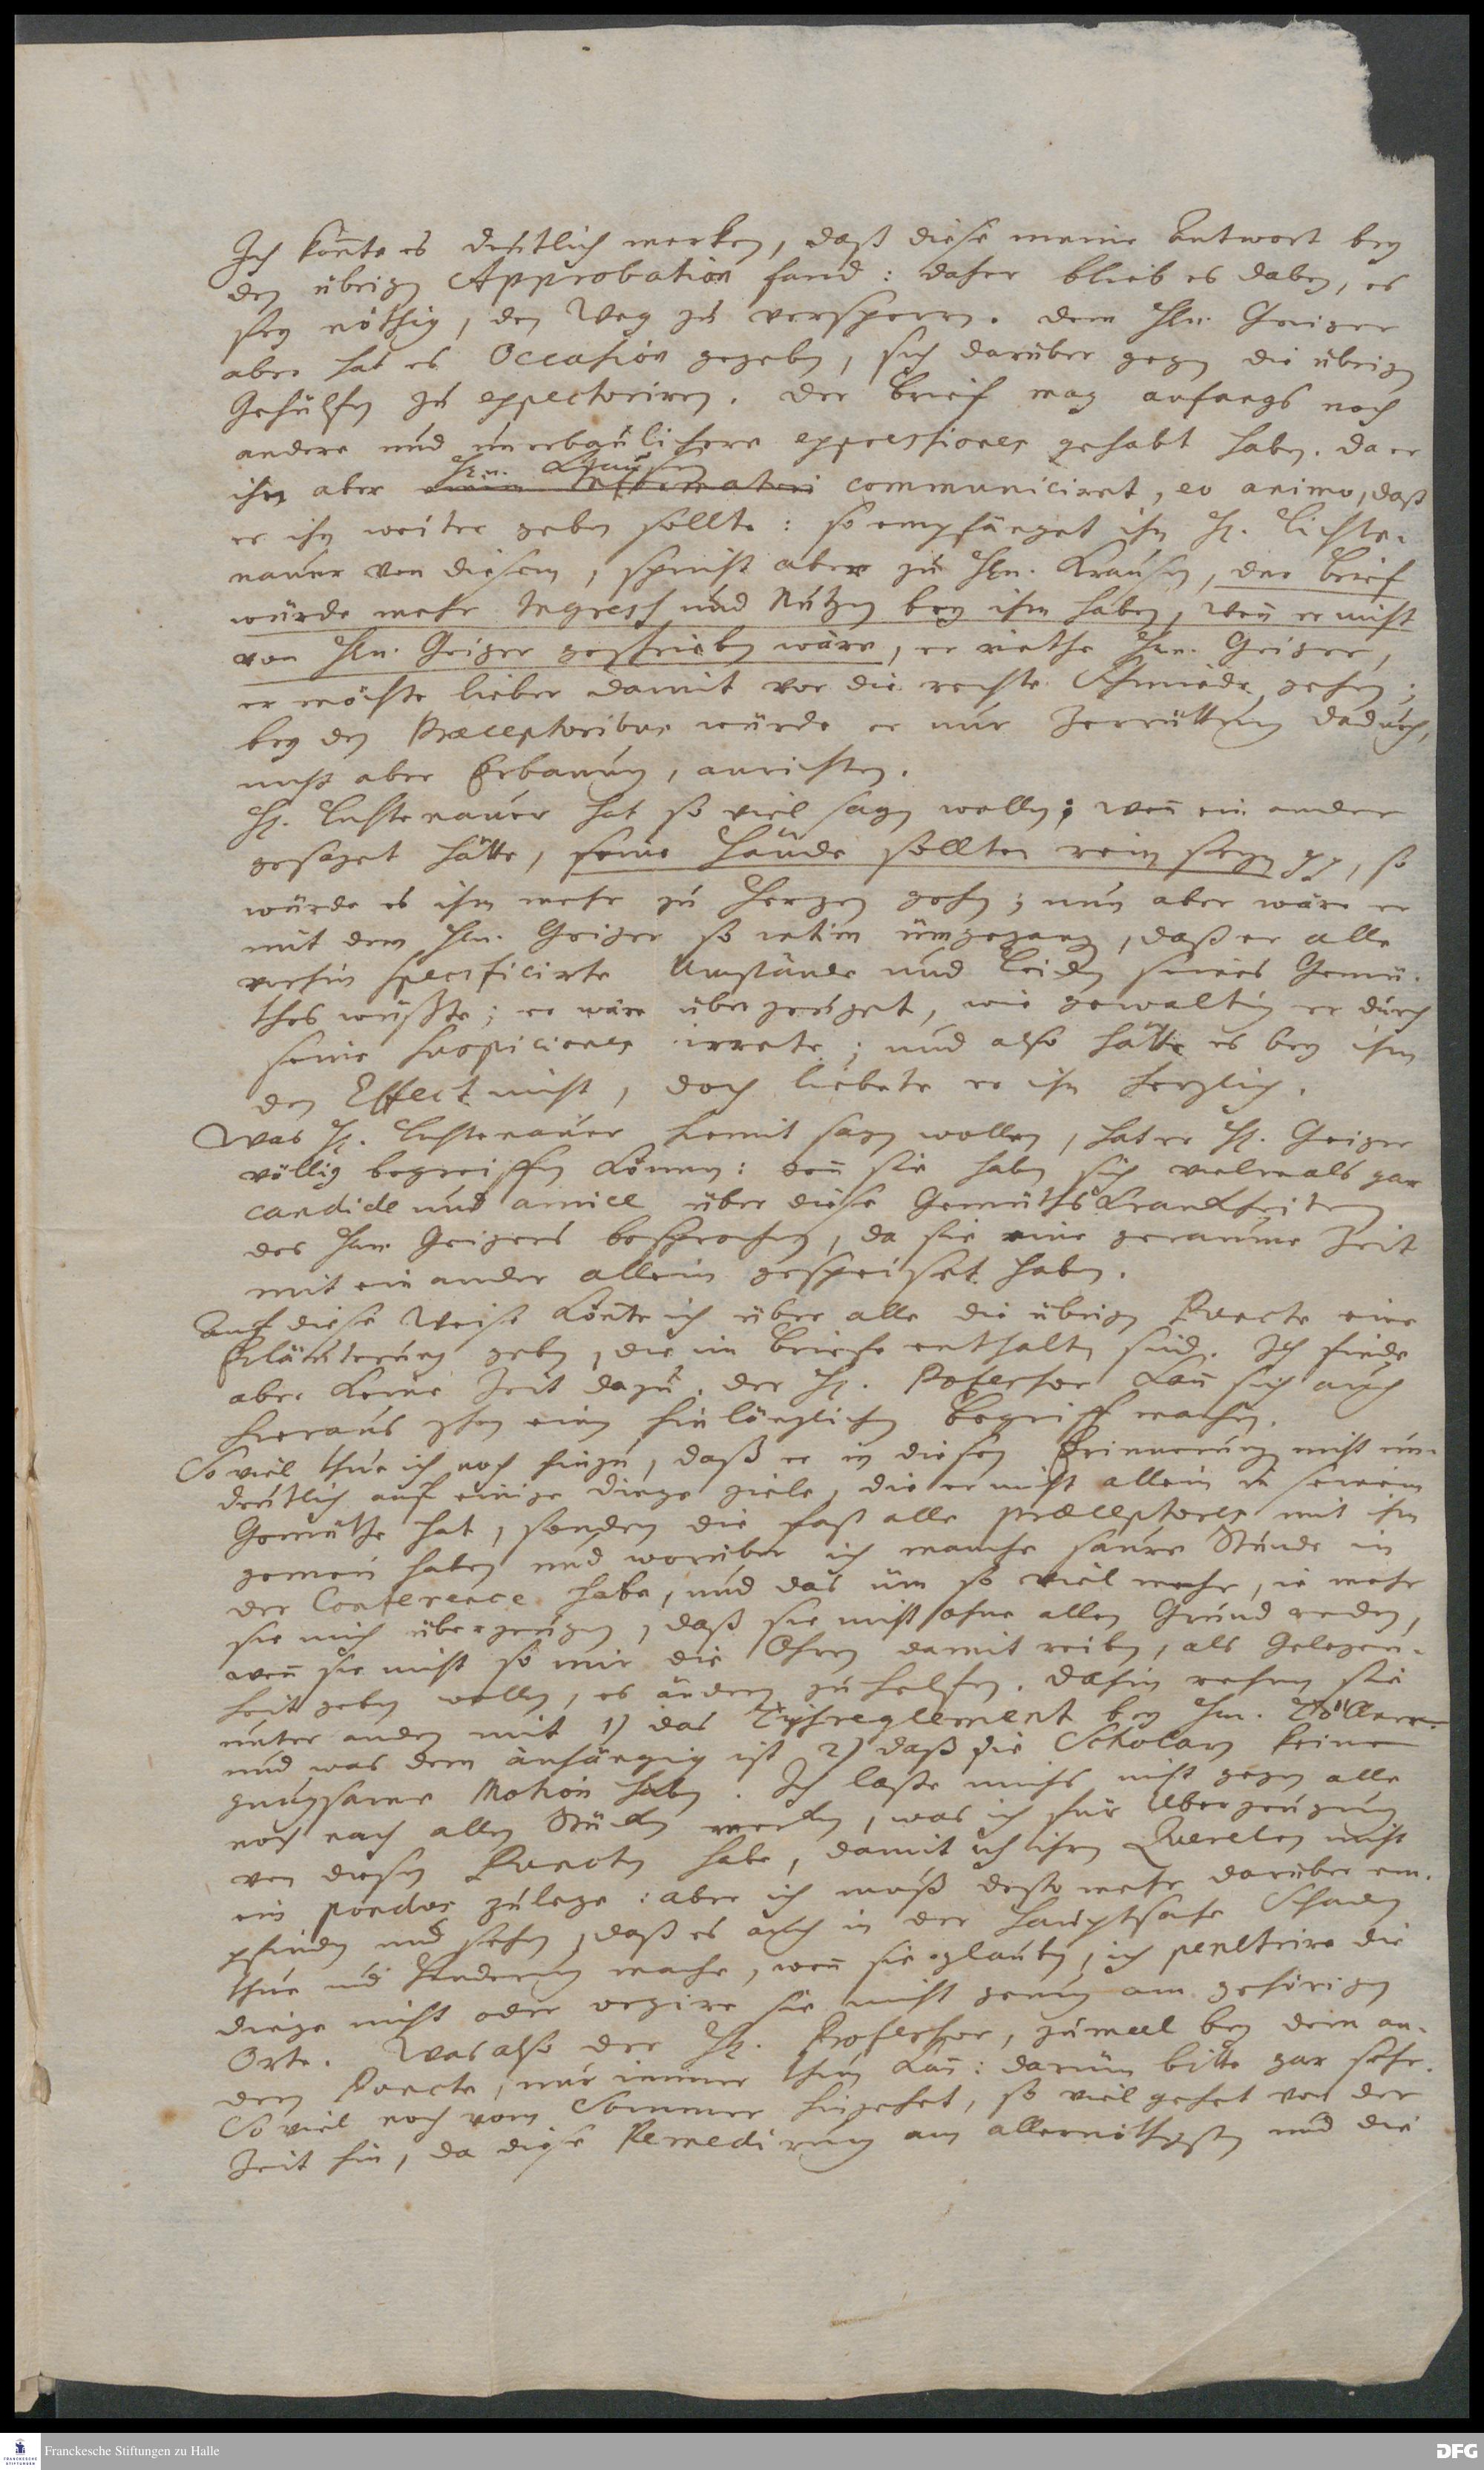 Ich konte es deutlich merken, daß diese meine Antwort bey
den übrigen Approbation fand: daher blieb es dabey, es
sey nöthig, den Weg zu versperren. dem Hln. Geiger
aber hat es Occasion gegeben, sich darüber gegen die übrigen
Gehülfen zu expectoriren. der Brief mag anfangs noch
andere und unerbaulichere expressiones gehabt haben. da er
Hln. Krausen
ihn aber einem Informatori communiciret, eo animo, daß
er ihn weiter geben sollte: so empfänget ihn H. Lichte-
nauer von diesem, spricht aber zu Hln. Krausen, der Brief
würde mehr Ingress und Nutzen bey ihm haben, wen er nicht
von Hln. Geiger geschrieben wäre, er riethe Hln. Geiger,
er möchte lieber damit vor die rechte Schmiede gehen;
bey den Præceptoribus würde er nur Zerrüttung dadurch,
nicht aber Erbauung, anrichten.
H. Lichtenauer hat so viel sagen wollen; wen ein ander
gesaget hätte, seine Hände sollten rein seyn pp, so
würde es ihm mehr zu Herzen gehen; nun aber wäre er
mit dem Hln. Geiger so intim umgegangen, daß er alle
vorhin specificirte Umstände und Leiden seines Gemü-
thes wüßte; er wäre überzeuget, wie gewaltig er durch
seine suspiciones irrete; und also hätte es bey ihm
den Effect nicht, doch liebete er ihn herzlich.
Was H. Lichtenauer hiemit sagen wollen, hat er H. Geiger
völlig begreiffen können: den sie haben sich vielmals gar
candide und amice über diese Gemüths Krankheiten
des Hln Geigers besprochen, da sie eine geraume Zeit
mit ein ander allein gespeiset haben.
Auf diese Weise könte ich über alle die übrigen Puncte eine
Erläuterung geben, die im Briefe enthalten sind. Ich finde
aber keine Zeit dazu. der H. Professor kan sich auch
hieraus schon einen hinlänglichen Begriff machen.
So viel thue ich noch hinzu, daß er in diesen Erinnerungen nicht un-
deutlich auf einige Dinge ziele, die er nicht allein in seinem
Gemüthe hat, sondern die fast alle præceptores mit ihm
gemein haben und worüber ich manche saure Stunde in
der Conference habe, und das um so viel mehr, ie mehr
sie mich überzeugen, daß sie nicht ohne allen Grund reden,
wen sie nicht so mir die Ohren damit reiben, als Gelegen-
heit geben wollen, es ändern zu helfen. dahin rechnen sie
unter andern mit 1) das Tischreglement bey Hln. Töllnern
und was dem anhängig ist 2) daß die Scholaren keine
gnugsame Motion haben. Ich lasse michs nicht gegen alle
noch nach allen Stücken merken, was ich für Uberzeugung
von diesen Puncten habe, damit ich ihren Querelen nicht
ein pondus zulege: aber ich muß desto mehr darüber em-
pfinden und sehen, daß es auch in der Hauptsache Schaden
thue und Hinderung mache, wen sie glauben, ich penetrire die
Dinge nicht oder urgire sie nicht genug am gehörigen
Orte. Was also der H. Professor, zumal bey dem an-
dern Puncte, nur immer thun kan: darum bitte gar sehr.
So viel noch vom Sommer hingehet, so viel gehet von der
Zeit hin, da diese Remedirung am allernöthigsten und die
Franckesche Stiftungen zu Halle
DFG